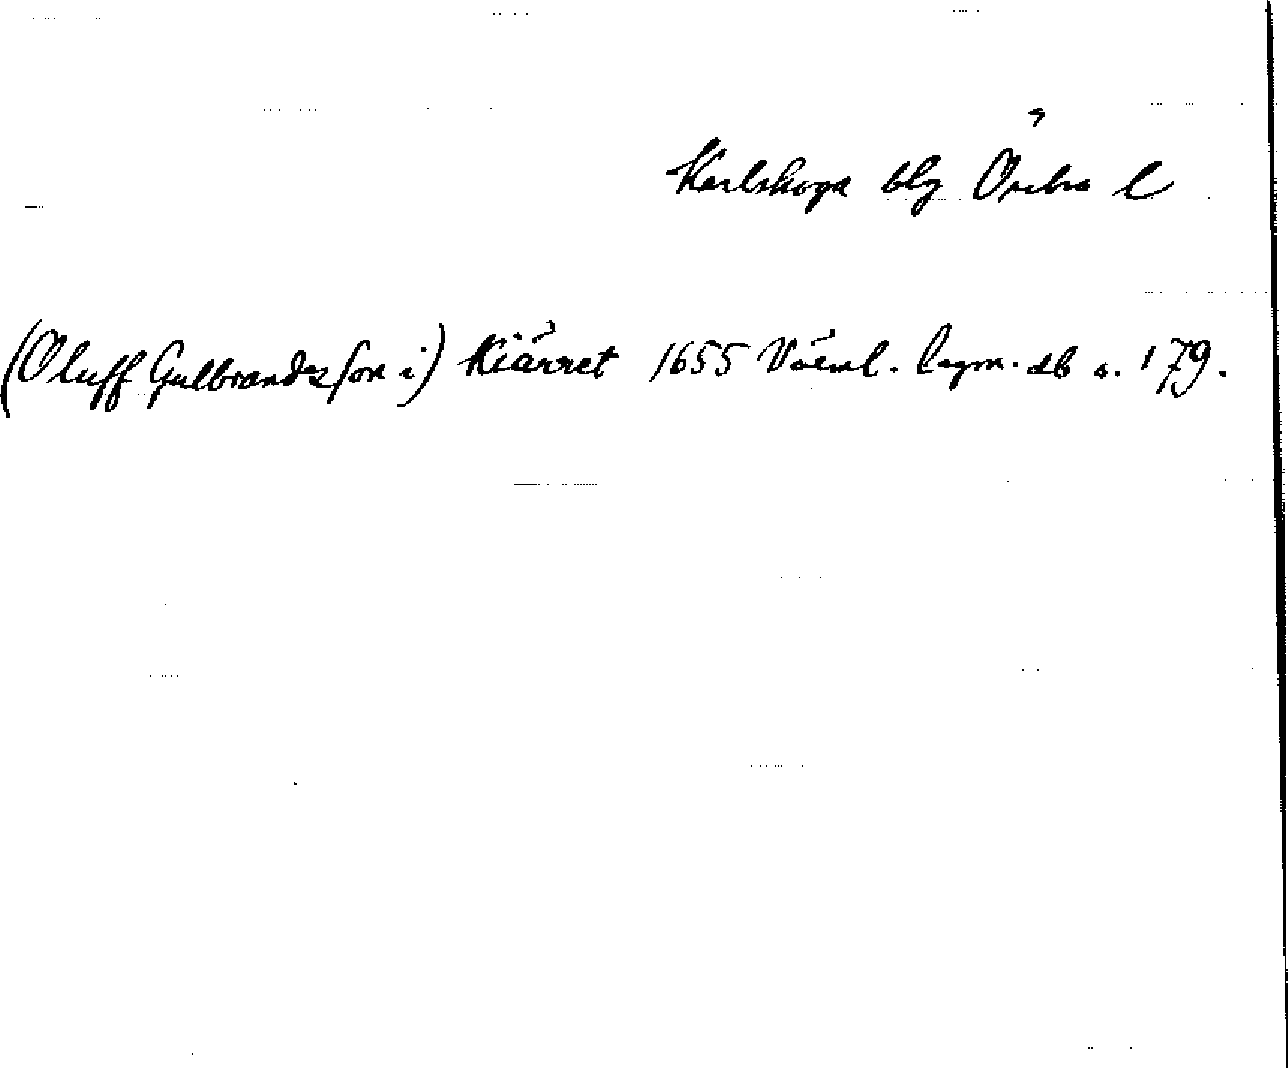 Karlskoga blg Örebro l
(Oluff Gulbrandzson i) Kiärret 1655 Värml. lagm. db s. 179.